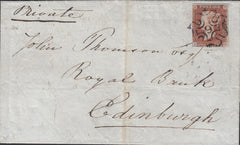 Private
John Thomson Esqr
Royal Bank
Edinburgh